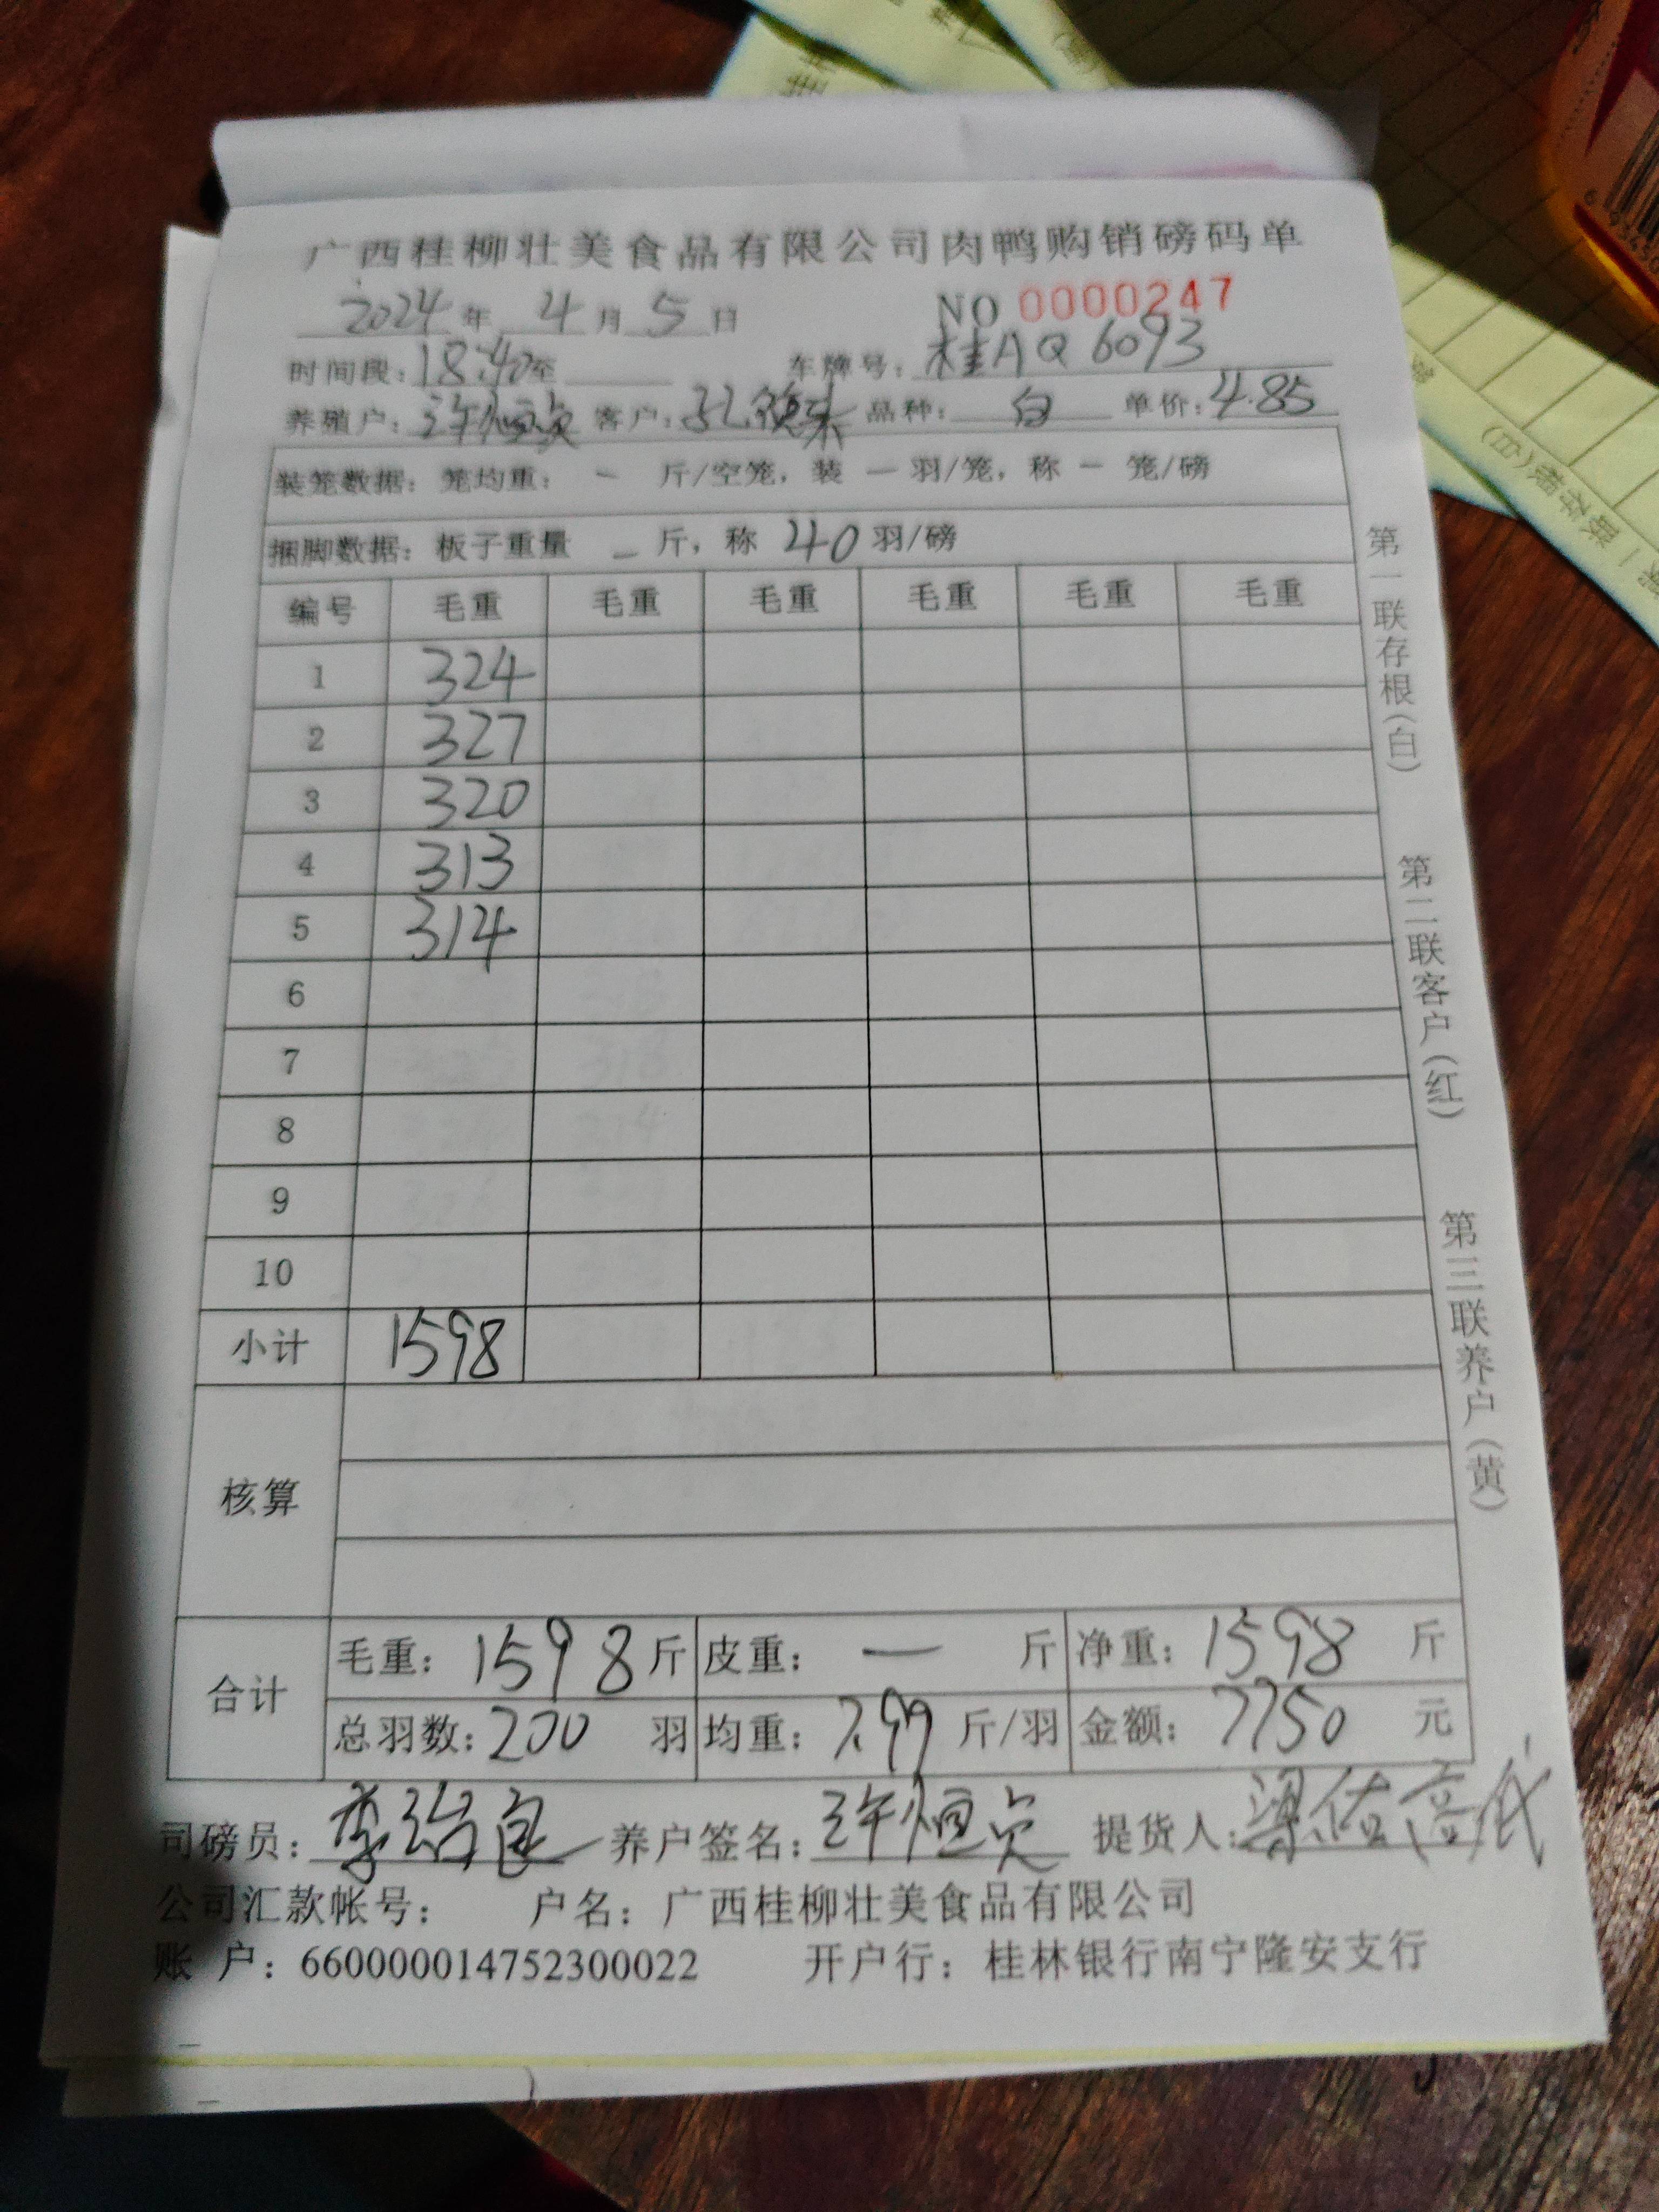 广西桂柳壮美食品有限公司肉鸭购销磅码单
2024年 4月 5日 NO 0000247
时间段:18:40至 车牌号:桂AQ6093
养殖户: 客户: 品种: 白 单价:4.85
装笼数据:笼均重: — 斤/空笼,装 — 羽/笼,称 — 笼/磅
捆脚数据:板子重量 — 斤,称 40 羽/磅
编号 毛重 毛重 毛重 毛重 毛重 毛重
1 324
2 327
3 320
4 313
5 314
6
7
8
9
10
小计 1598
核算
合计 毛重:1598斤 皮重: — 斤 净重:1598 斤
总羽数:200 羽 均重:7.99 斤/羽 金额:7750 元
司磅员: 养户签名: 提货人:
公司汇款帐号: 户名:广西桂柳壮美食品有限公司
账 户:660000014752300022 开户行:桂林银行南宁隆安支行
第一联存根(白)
第二联客户(红)
第三联养户(黄)